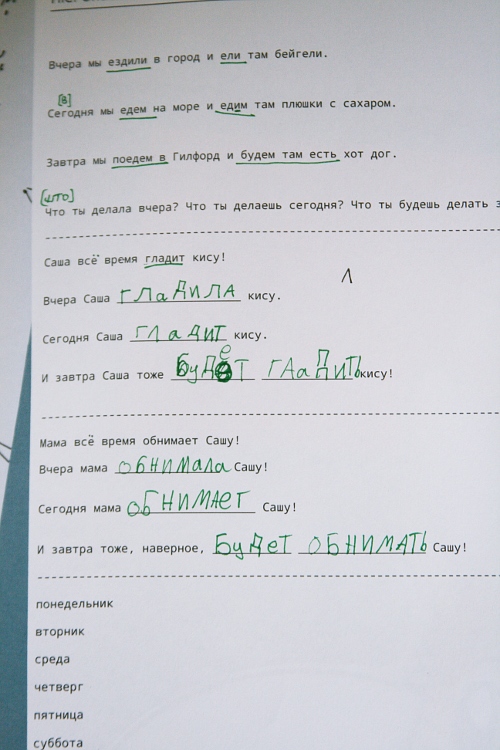 Вчера мы ездили в город и ели там бейгели.
[В]
Сегодня мы едем на море и едим там плюшки с сахаром.
Завтра мы поедем в Гилфорд и будем там есть хот дог.
[ШТО]
Что ты делала вчера? Что ты делаешь сегодня? Что ты будешь делать з
Саша всё время гладит кису!
Л
Вчера Саша ГЛаДИЛА кису.
Сегодня Саша ГЛаДИТ кису.
е
И завтра Саша тоже БуДЕТ ГЛаДИТЬ кису!
Мама всё время обнимает Сашу!
Вчера мама ОБНИМала Сашу!
Сегодня мама ОБНИМАЕТ Сашу!
И завтра тоже, наверное, БуДеТ ОБНИМАТЬ Сашу!
понедельник
вторник
среда
четверг
пятница
суббота